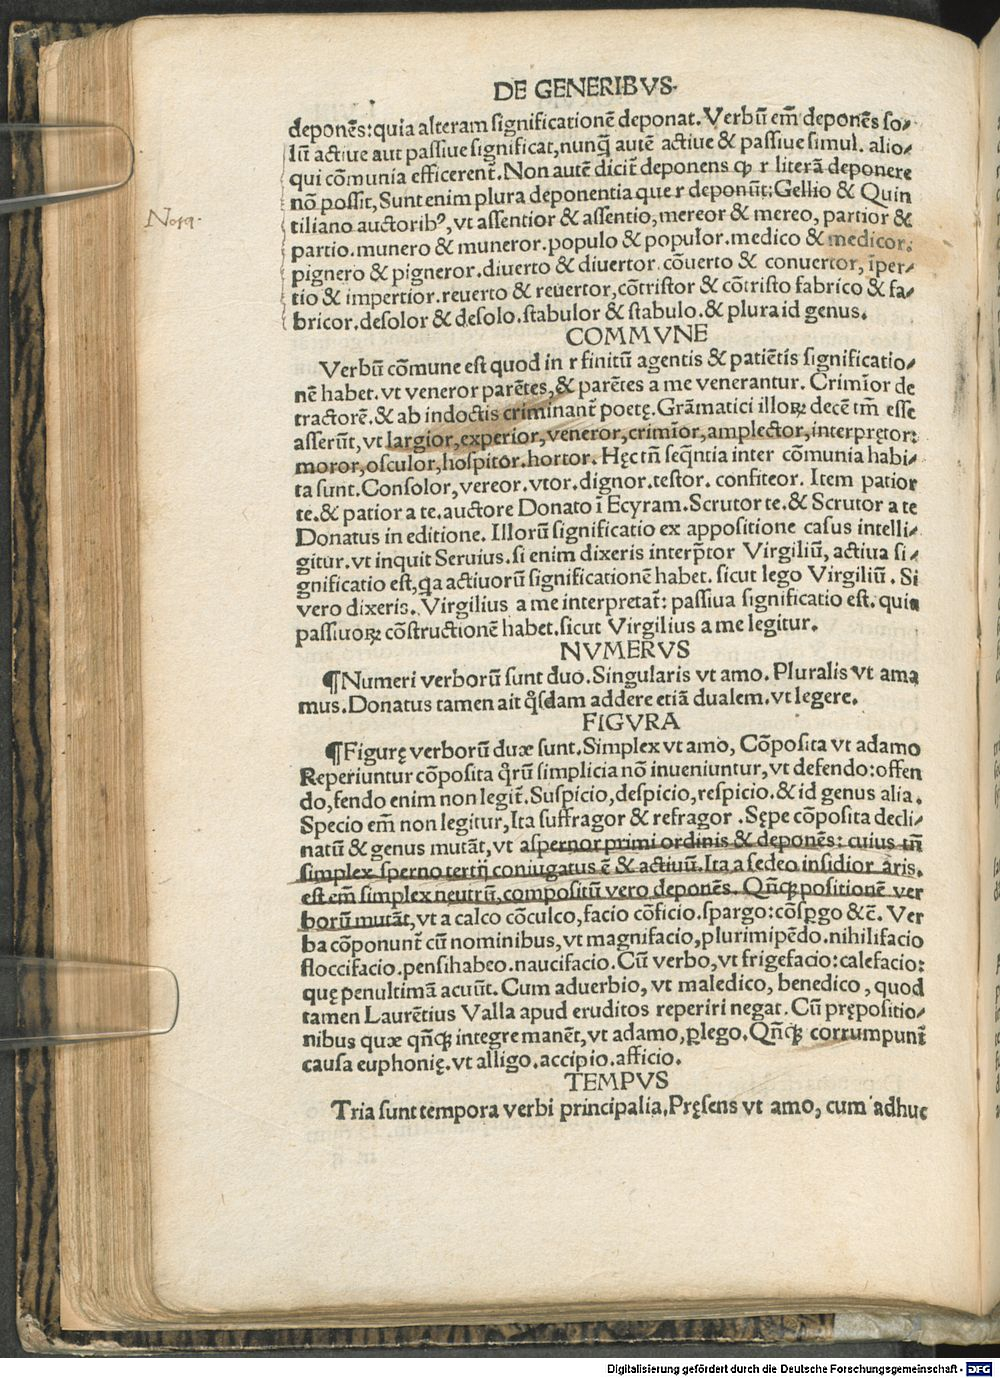 DE GENERIBVS.
deponēs: quia alteram significationē deponat. Verbū em̄ deponēs so⸗
lū actiue aut passiue significat, nunq̄ autē actiue & passiue simul. alio⸗
qui cōmunia efficerent᷑. Non autē dicit᷑ deponens ꝙ r literā deponere
nō possit, Sunt enim plura deponentia que r deponūt: Gellio & Quin
tiliano auctorib⁹, vt assentior & assentio, mereor & mereo, partior &
partio. munero & muneror. populo & populor. medico & medicor.
pignero & pigneror. diuerto & diuertor. cōuerto & conuertor, īper⸗
tio & impertior. reuerto & reuertor, cōtristor & cōtristo fabrico & fa⸗
bricor. desolor & desolo. stabulor & stabulo. & plura id genus.
Nota.
COMMVNE
Verbū cōmune est quod in r finitū agentis & patiētis significatio⸗
nē habet. vt veneror parētes, & parētes a me venerantur. Crimīor de
tractorē. & ab indoctis criminant᷑ poetę. Grāmatici illoꝝ decē tm̄ esse
asserūt, vt largior, experior, veneror, crimīor, amplector, interpretor:
moror, osculor, hospitor. hortor. Hęc tn̄ seq̄ntia inter cōmunia habi⸗
ta sunt. Consolor, vereor. vtor. dignor. testor. confiteor. Item patior
te. & patior a te. auctore Donato ī Ecyram. Scrutor te. & Scrutor a te
Donatus in editione. Illorū significatio ex appositione casus intelli⸗
gitur. vt inquit Seruius. si enim dixeris interp̄tor Virgiliū, actiua si⸗
gnificatio est, q̄a actiuorū significationē habet. sicut lego Virgiliū. Si
vero dixeris. Virgilius a me interpretat᷑: passiua significatio est. quia
passiuoꝝ cōstructionē habet. sicut Virgilius a me legitur.
NVMERVS
¶Numeri verborū sunt duo. Singularis vt amo. Pluralis vt ama
mus. Donatus tamen ait q̄sdam addere etiā dualem. vt legere.
FIGVRA
¶Figurę verborū duæ sunt. Simplex vt amo, Cōposita vt adamo
Reperiuntur cōposita q̄rū simplicia nō inueniuntur, vt defendo: offen
do, fendo enim non legit᷑. Suspicio, despicio, respicio. & id genus alia.
Specio em̄ non legitur, Ita suffragor & refragor. Sępe cōposita decli⸗
natū & genus mutāt, vt aspernor primi ordinis & deponēs: cuius tn̄
simplex sperno tertij coniugatus ē & actiuū. Ita a sedeo insidior aris.
est em̄ simplex neutrū, compositū vero deponēs. Qn̄qꝫ positionē ver
borū mutāt, vt a calco cōculco, facio cōficio. spargo: cōsꝑgo &c̄. Ver
ba cōponunt᷑ cū nominibus, vt magnifacio, plurimipēdo. nihilifacio
floccifacio. pensihabeo. naucifacio. Cū verbo, vt frigefacio: calefacio:
quę penultimā acuūt. Cum aduerbio, vt maledico, benedico, quod
tamen Laurētius Valla apud eruditos reperiri negat. Cū prępositio⸗
nibus quæ qn̄qꝫ integre manēt, vt adamo, ꝑlego. Qn̄qꝫ corrumpunt᷑
causa euphonię. vt alligo. accipio. afficio.
TEMPVS
Tria sunt tempora verbi principalia, Pręsens vt amo, cum adhuc
Digitalisierung gefördert durch die Deutsche Forschungsgemeinschaft - DFG